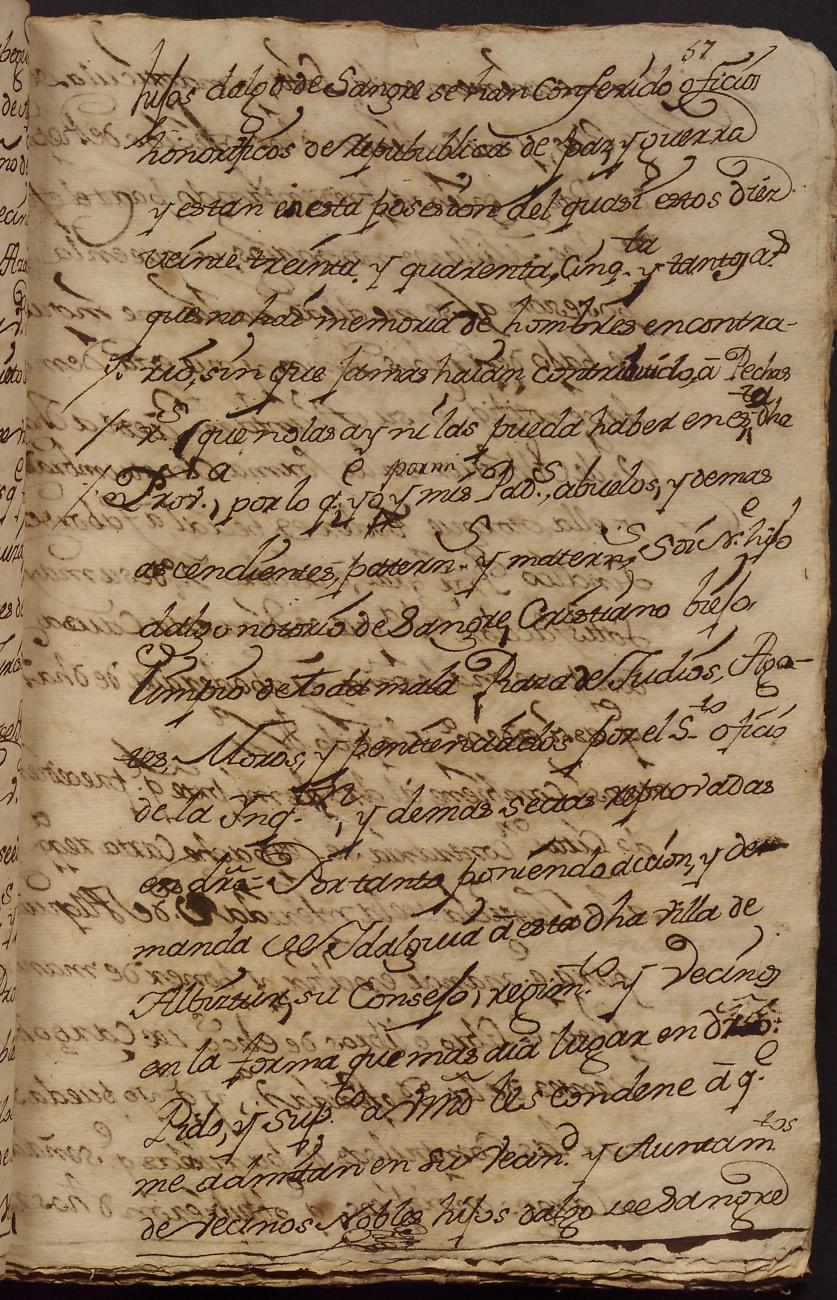 57
hijos dalgo de Sangre se han Conferido oficios
honorificos de Republica de paz y guerra
y estan en esta posesion del quasi estos diez
veinte. treinta. y quarenta, Cinq.ta y tantos a.s
que no hai memoria de hombres en contra-
rio, sin que Jamas haian contribuido, â Pechas
(que no las ay ni las pueda haber en esta dha
Prov.a, por lo q.e yo y mis Pad.s, abuelos, y demas
ascendientes, patern.s y matern.s Soi N.e hijo
dalgo notorio de Sangre, Cristiano biejo,
limpio de toda mala Raza de Judios, Ago-
tes Moros, y penitenciados por el S.to oficio
de la Inq.on, y demas sectas reprovadas
en dro = Por tanto poniendo acion, y de-
manda de Idalguia â esta dha villa de
Albiztur, su Consejo, regim.to y Vecinos
en la forma que mas dia lugar en dro:
Pido, y sup.co a Vmd les condene â q.e
me admitan en su Vecin.d y Auntam.tos
de Vecinos Nobles hijos dalgo de Sangre